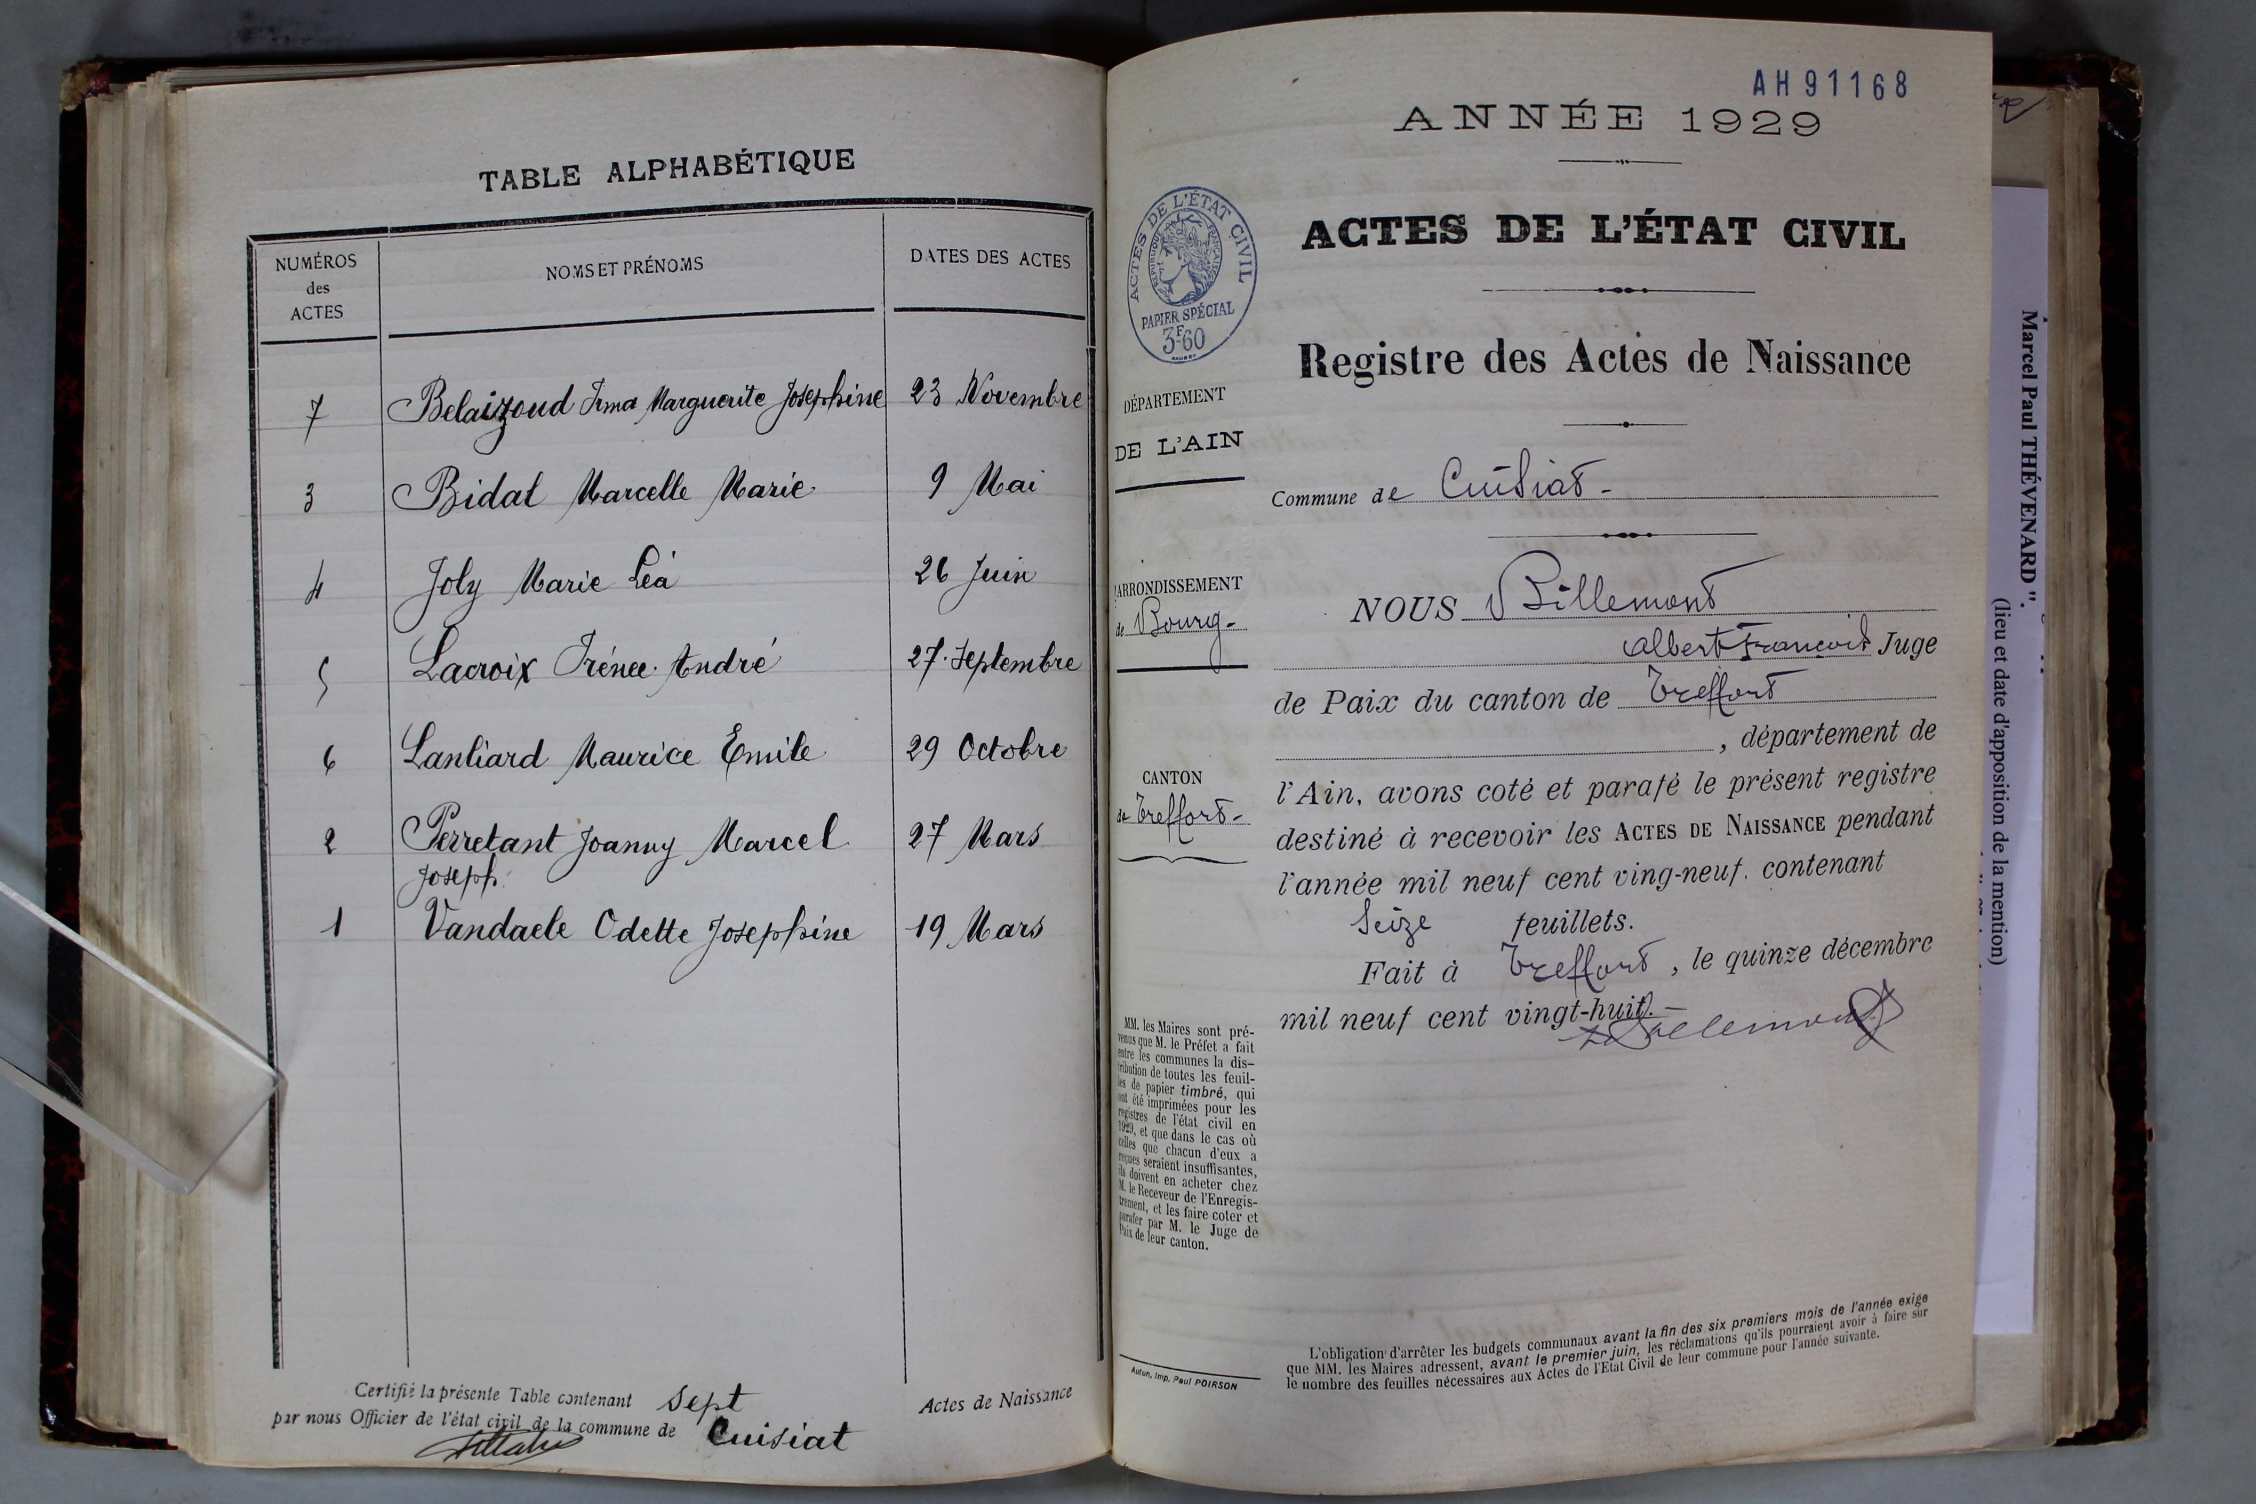 TABLE ALPHABÉTIQUE
NUMÉROS
des
ACTES
NOMS ET PRÉNOMS
DATES DES ACTES
7 Belaizoud Irma Marguerite Josephine 23 Novembre
3 Bidat Marcelle Marie 9 Mai
4 Joly Marie Léa 26 Juin
5 Lacroix Irénée André 27 Septembre
6 Lanliard Maurice Emile 29 Octobre
2 Perretant Joanny Marcel 27 Mars
Joseph
1 Vandaele Odette Josephine 19 Mars
Certifié la présente Table contenant sept Actes de Naissance
par nous Officier de l'état civil de la commune de Cuisiat
AH91168
ANNÉE 1929
ACTES DE L'ÉTAT CIVIL
RÉPUBLIQUE FRANÇAISE
PAPIER SPÉCIAL
3F60
ACTES DE L'ÉTAT CIVIL
Registre des Actes de Naissance
DÉPARTEMENT
DE L'AIN
Commune de Cuisiat -
ARRONDISSEMENT
de Bourg -
NOUS Billemont
Albert François Juge
de Paix du canton de Treffort
, département de
CANTON
de Treffort -
l'Ain, avons coté et parafé le présent registre
destiné à recevoir les ACTES DE NAISSANCE pendant
l'année mil neuf cent ving-neuf. contenant
Seize feuillets.
Fait à Treffort, le quinze décembre
mil neuf cent vingt-huit.
Billemont
MM. les Maires sont pré-
venus que M. le Préfet a fait
entre les communes la dis-
tribution de toutes les feuil-
les de papier timbré, qui
ont été imprimées pour les
registres de l'état civil en
1929, et que dans le cas où
celles que chacun d'eux a
reçues seraient insuffisantes,
ils doivent en acheter chez
M. le Receveur de l'Enregis-
trement, et les faire coter et
parafer par M. le Juge de
Paix de leur canton.
Autun, Imp. Paul POIRSON
L'obligation d'arrêter les budgets communaux avant la fin des six premiers mois de l'année exige
que MM. les Maires adressent, avant le premier juin, les réclamations qu'ils pourraient avoir à faire sur
le nombre des feuilles nécessaires aux Actes de l'Etat Civil de leur commune pour l'année suivante.
Marcel Paul THÉVENARD ".
(lieu et date d'apposition de la mention)